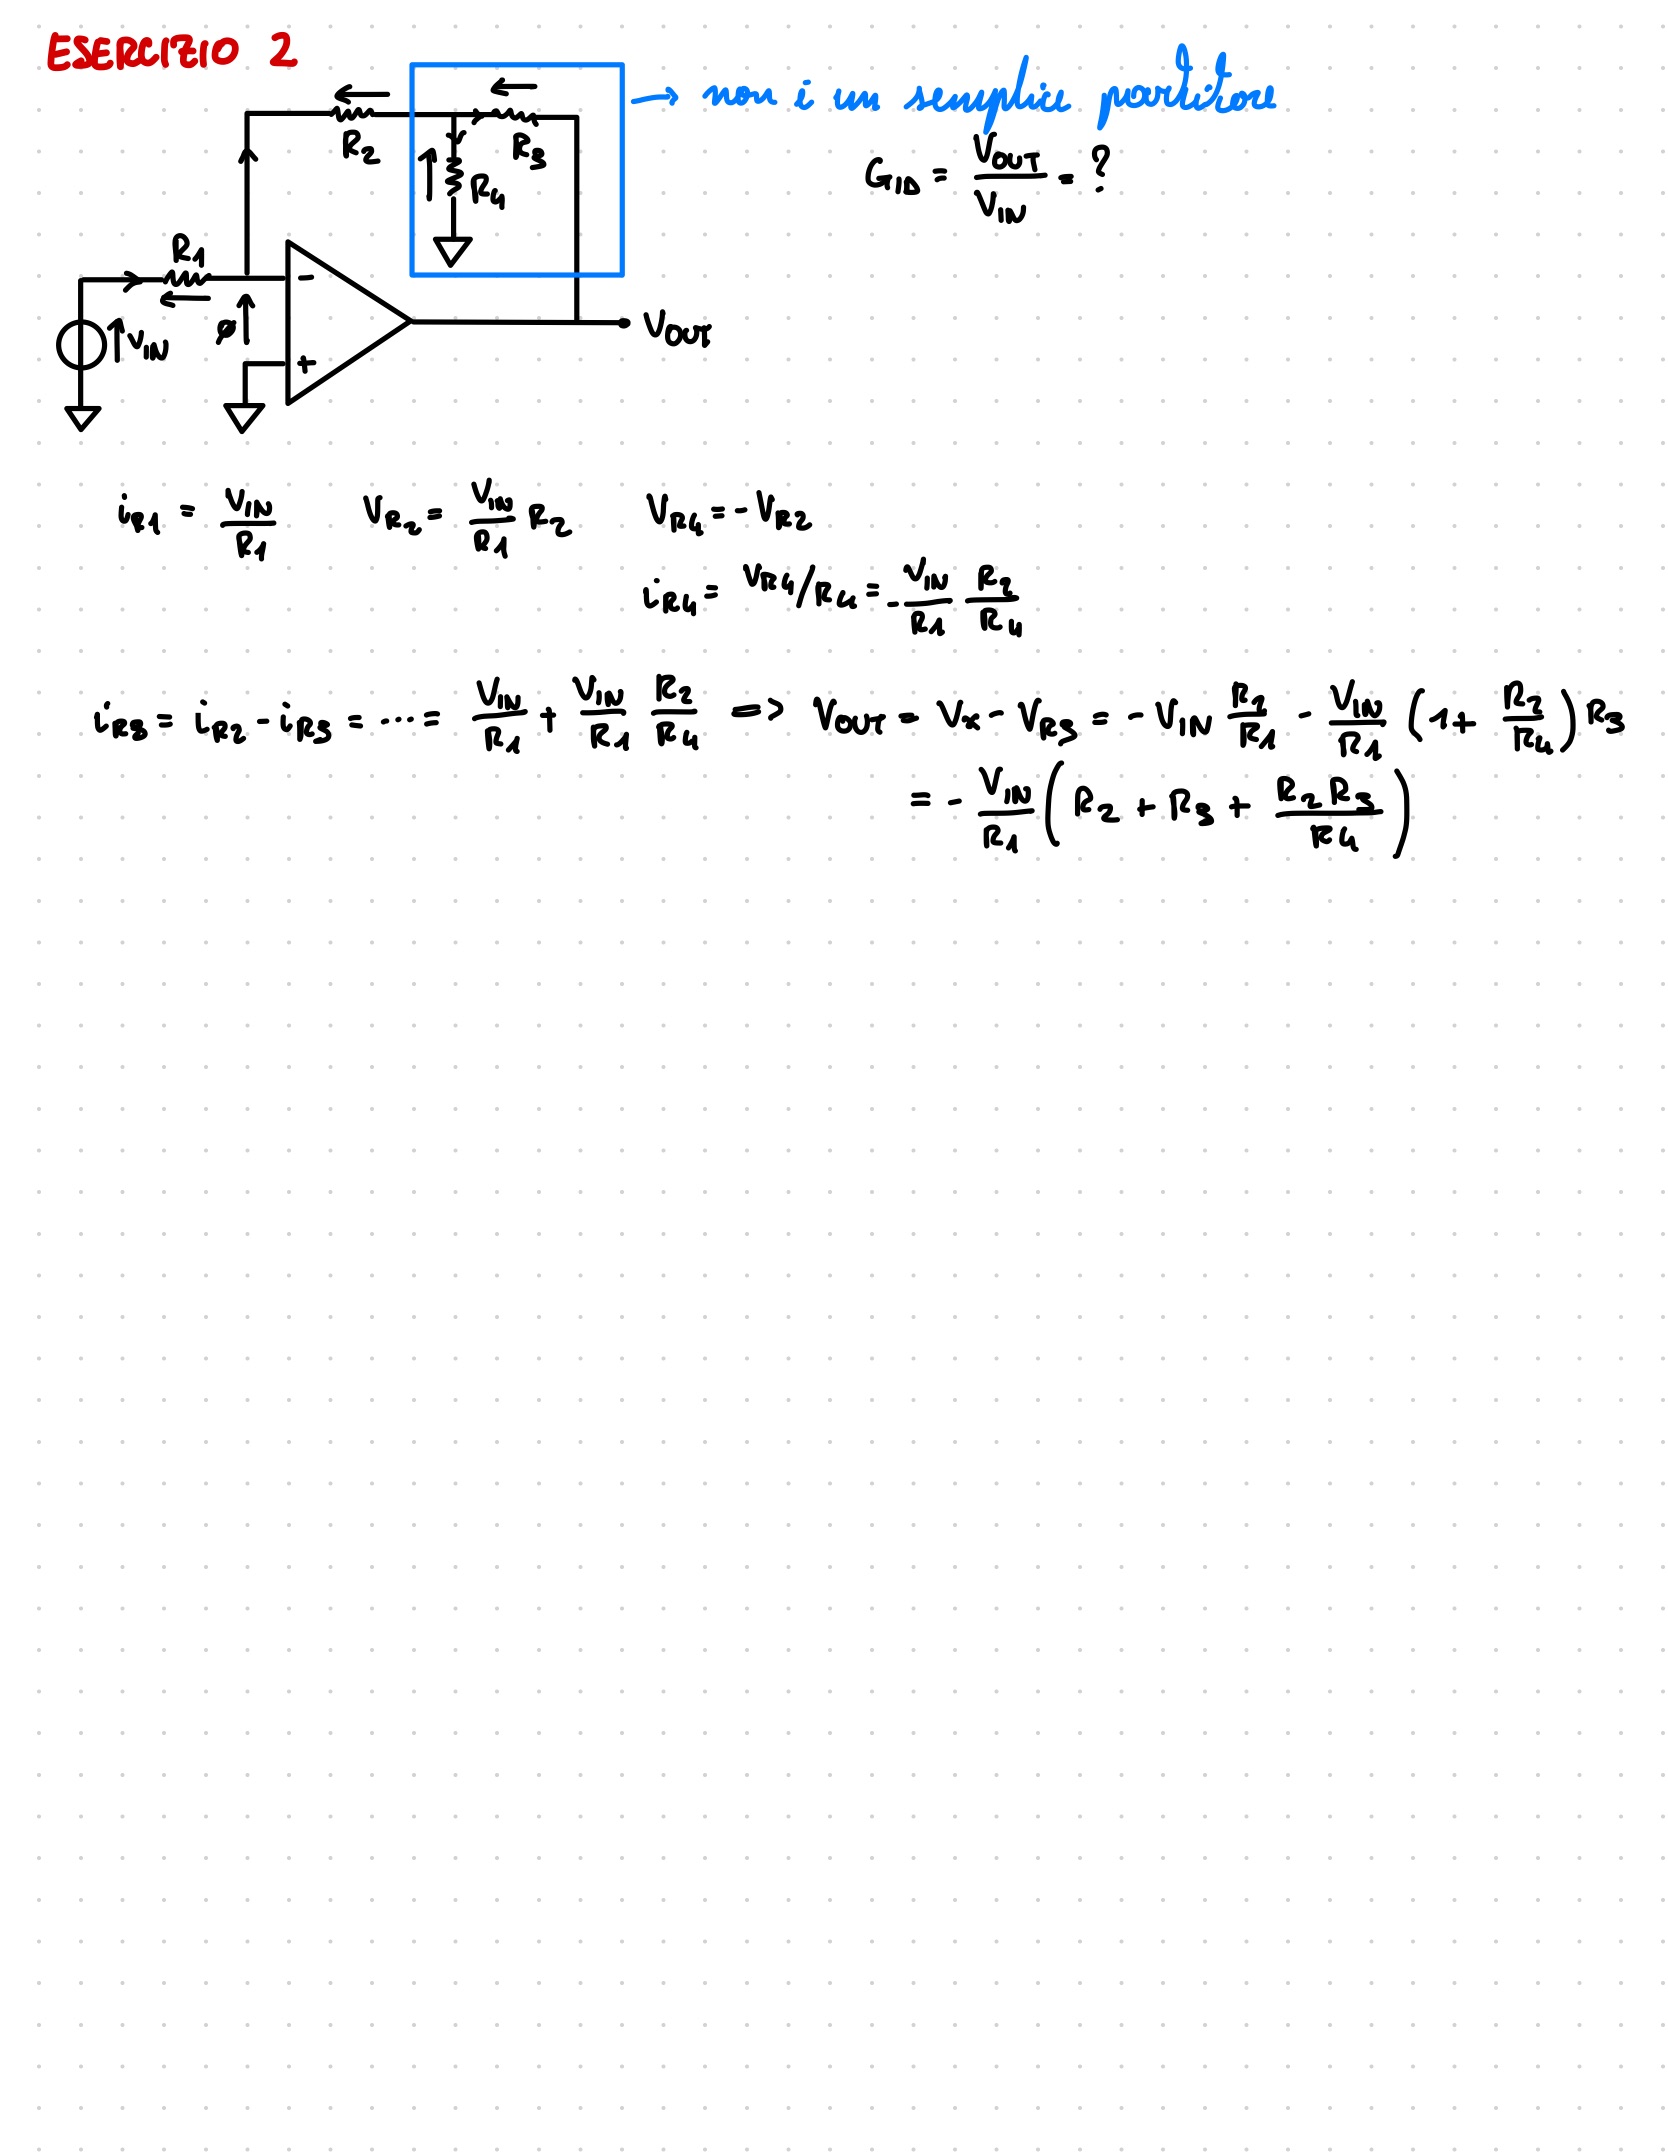 ESERCIZIO 2
→ non i un semplice partitore
R2
R3
R4
G_ID = V_OUT / V_IN = ?
R1
-
ø
V_IN
+
V_OUT
i_R1 = V_IN / R1 V_R2 = V_IN / R1 R2 V_R4 = - V_R2
i_R4 = V_R4 / R4 = - V_IN / R1 R2 / R4
i_R3 = i_R2 - i_R3 = ... = V_IN / R1 + V_IN / R1 R2 / R4 => V_OUT = V_x - V_R3 = - V_IN R2 / R1 - V_IN / R1 (1 + R2 / R4) R3
= - V_IN / R1 (R2 + R3 + R2 R3 / R4)